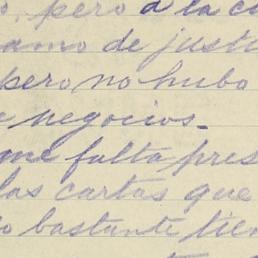 o, pero a la c
amo de justi
pero no hubo
e negocios.
me falta pres
las cartas que
o bastante tien